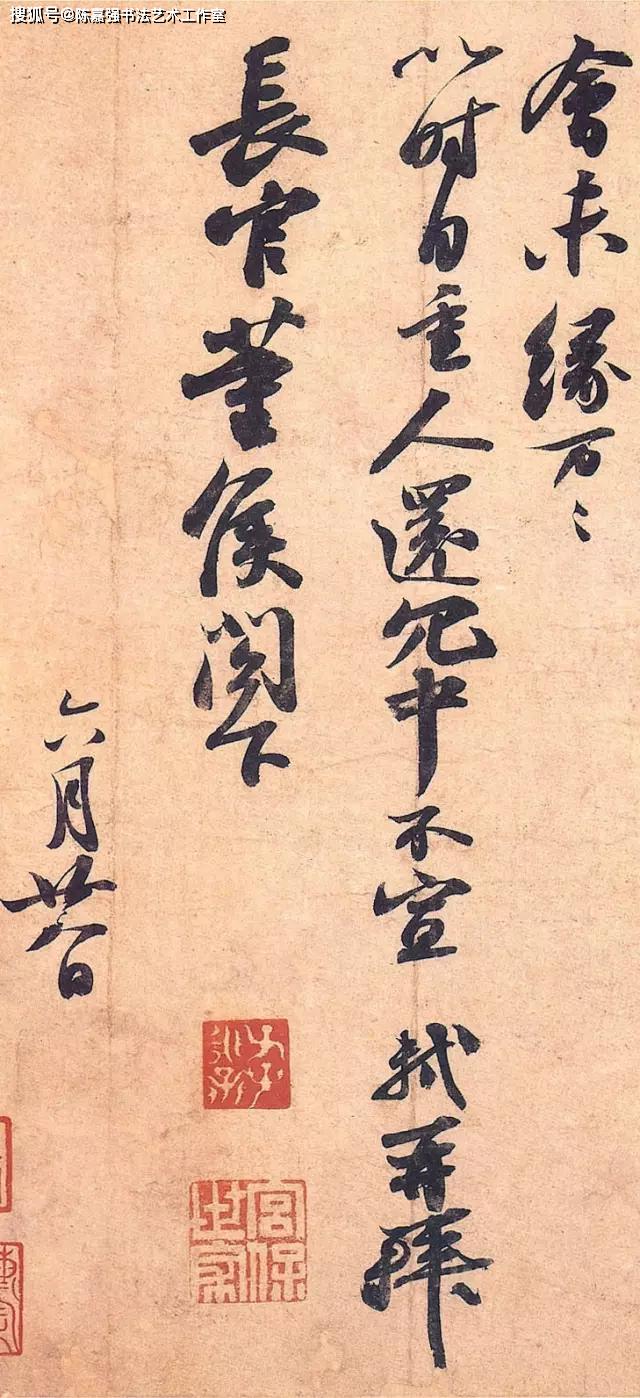 搜狐号@陈嘉强书法艺术工作室
會未緣万〻
以時自重人還冗中不宣 軾再拜
長官董侯閤下
六月廿八日
宮保世家